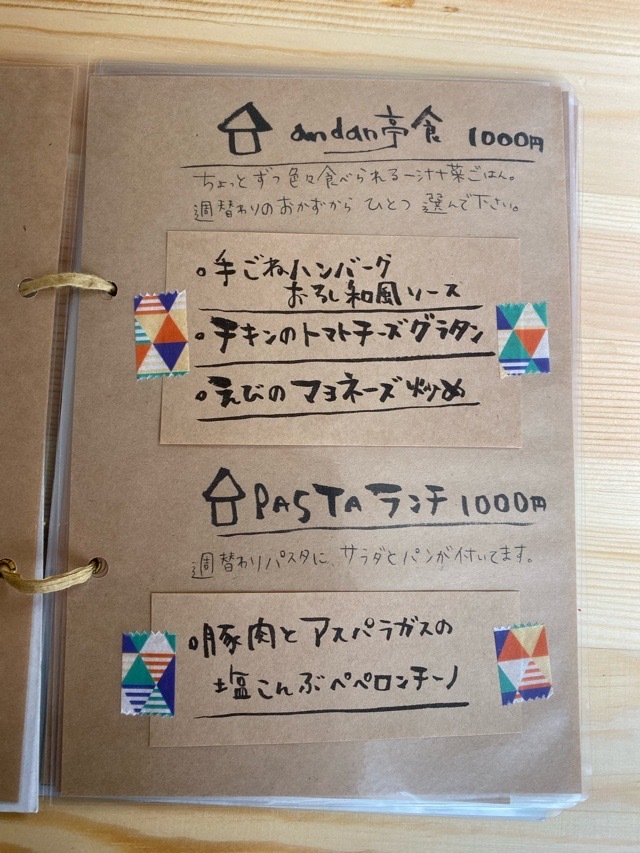 andan亭食 1000円
ちょっとずつ色々食べられる一汁十菜ごはん。
週替わりのおかずから ひとつ 選んで下さい。
・手ごねハンバーグ
おろし和風ソース
・チキンのトマトチーズグラタン
・えびのマヨネーズ炒め
PASTAランチ 1000円
週替わりパスタに、サラダとパンが付いてます。
・豚肉とアスパラガスの
塩こんぶペペロンチーノ